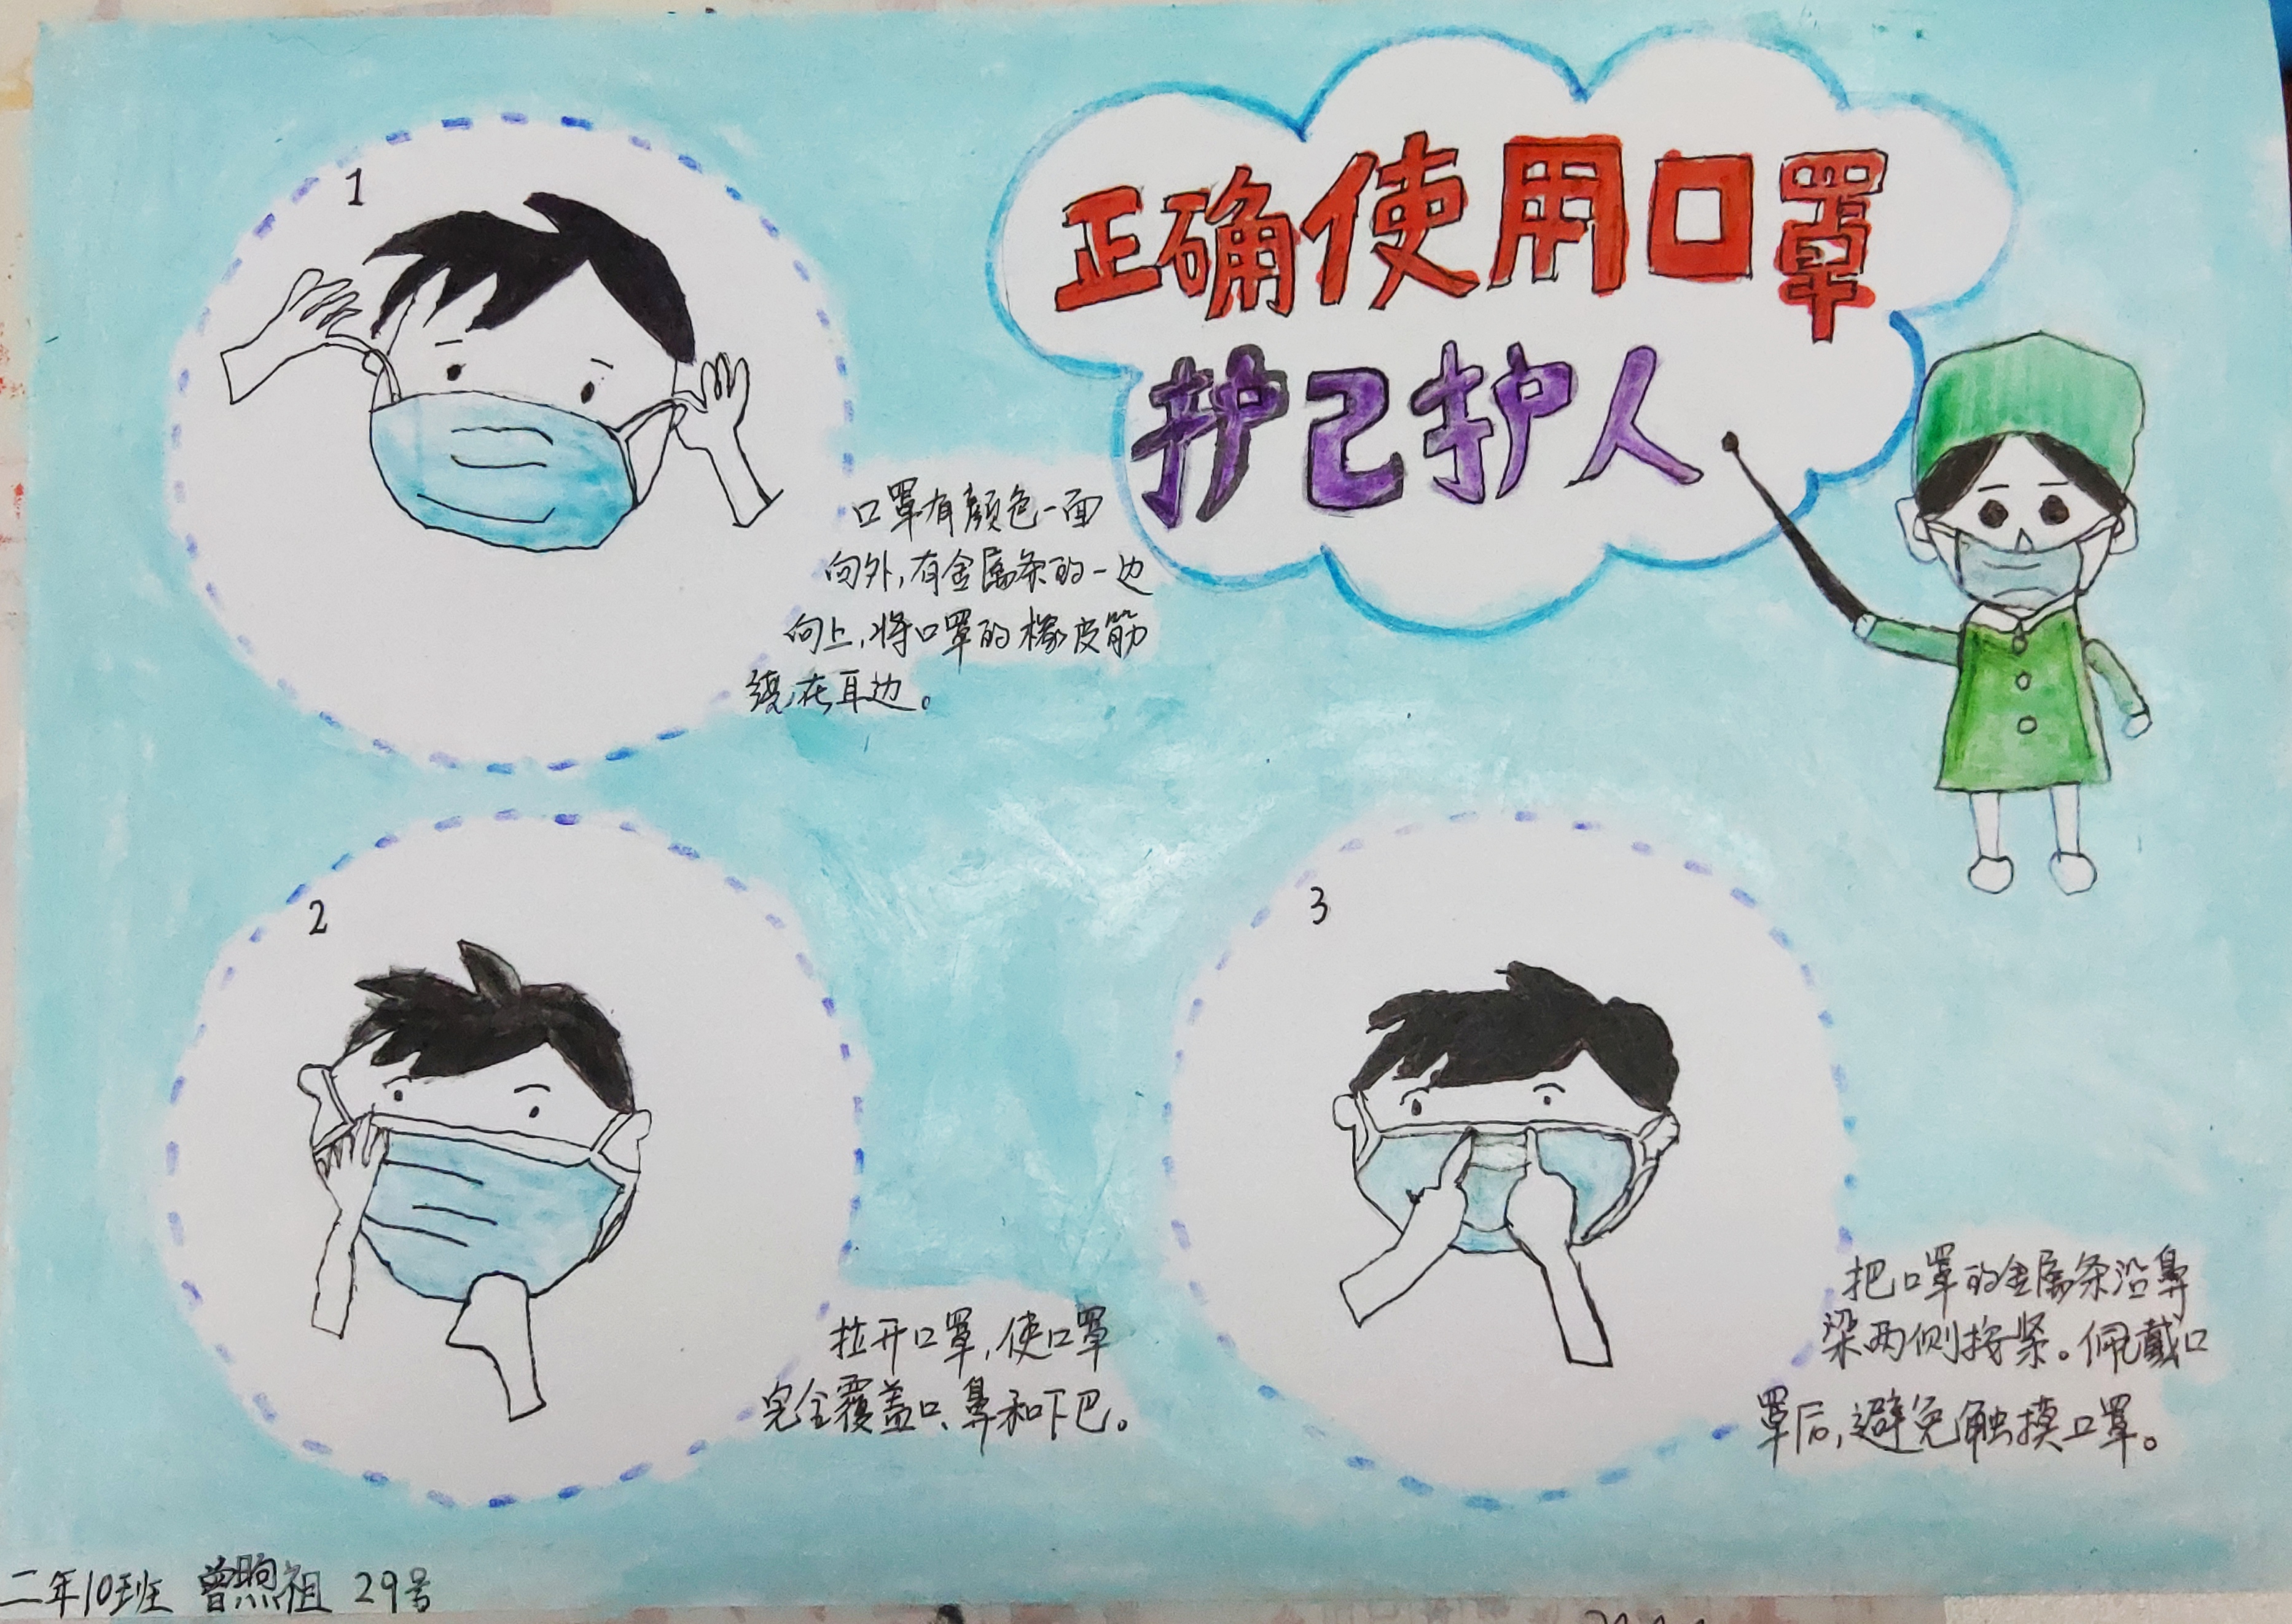 正确使用口罩
护己护人
1
口罩有颜色一面
向外,有金属条的一边
向上,将口罩的橡皮筋
绕在耳边。
2
拉开口罩,使口罩
完全覆盖口、鼻和下巴。
3
把口罩的金属条沿鼻
梁两侧按紧。佩戴口
罩后,避免触摸口罩。
二年10班 曾煦祖 29号